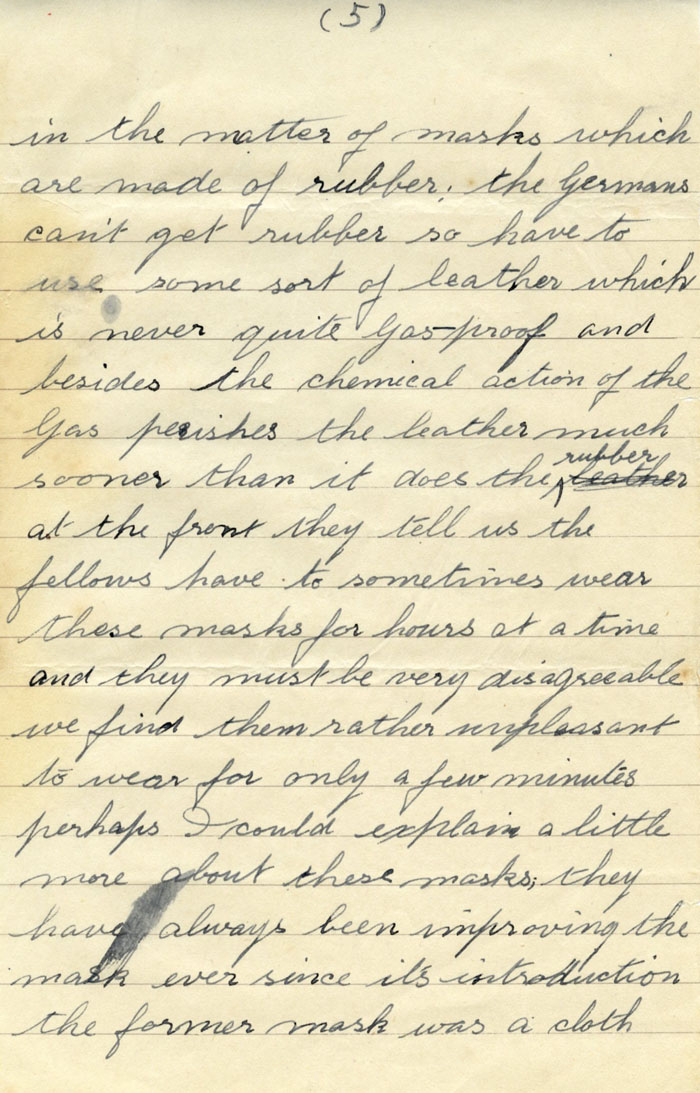 (5)
in the matter of masks which
are made of rubber; the Germans
can't get rubber so have to
use some sort of leather which
is never quite Gas-proof and
besides the chemical action of the
Gas perishes the leather much
sooner than it does the rubber leather
at the front they tell us the
fellows have to sometimes wear
these masks for hours at a time
and they must be very disagreeable
we find them rather unpleasant
to wear for only a few minutes
perhaps I could explain a little
more about these masks; they
have always been improving the
mask ever since it's introduction
the former mask was a cloth